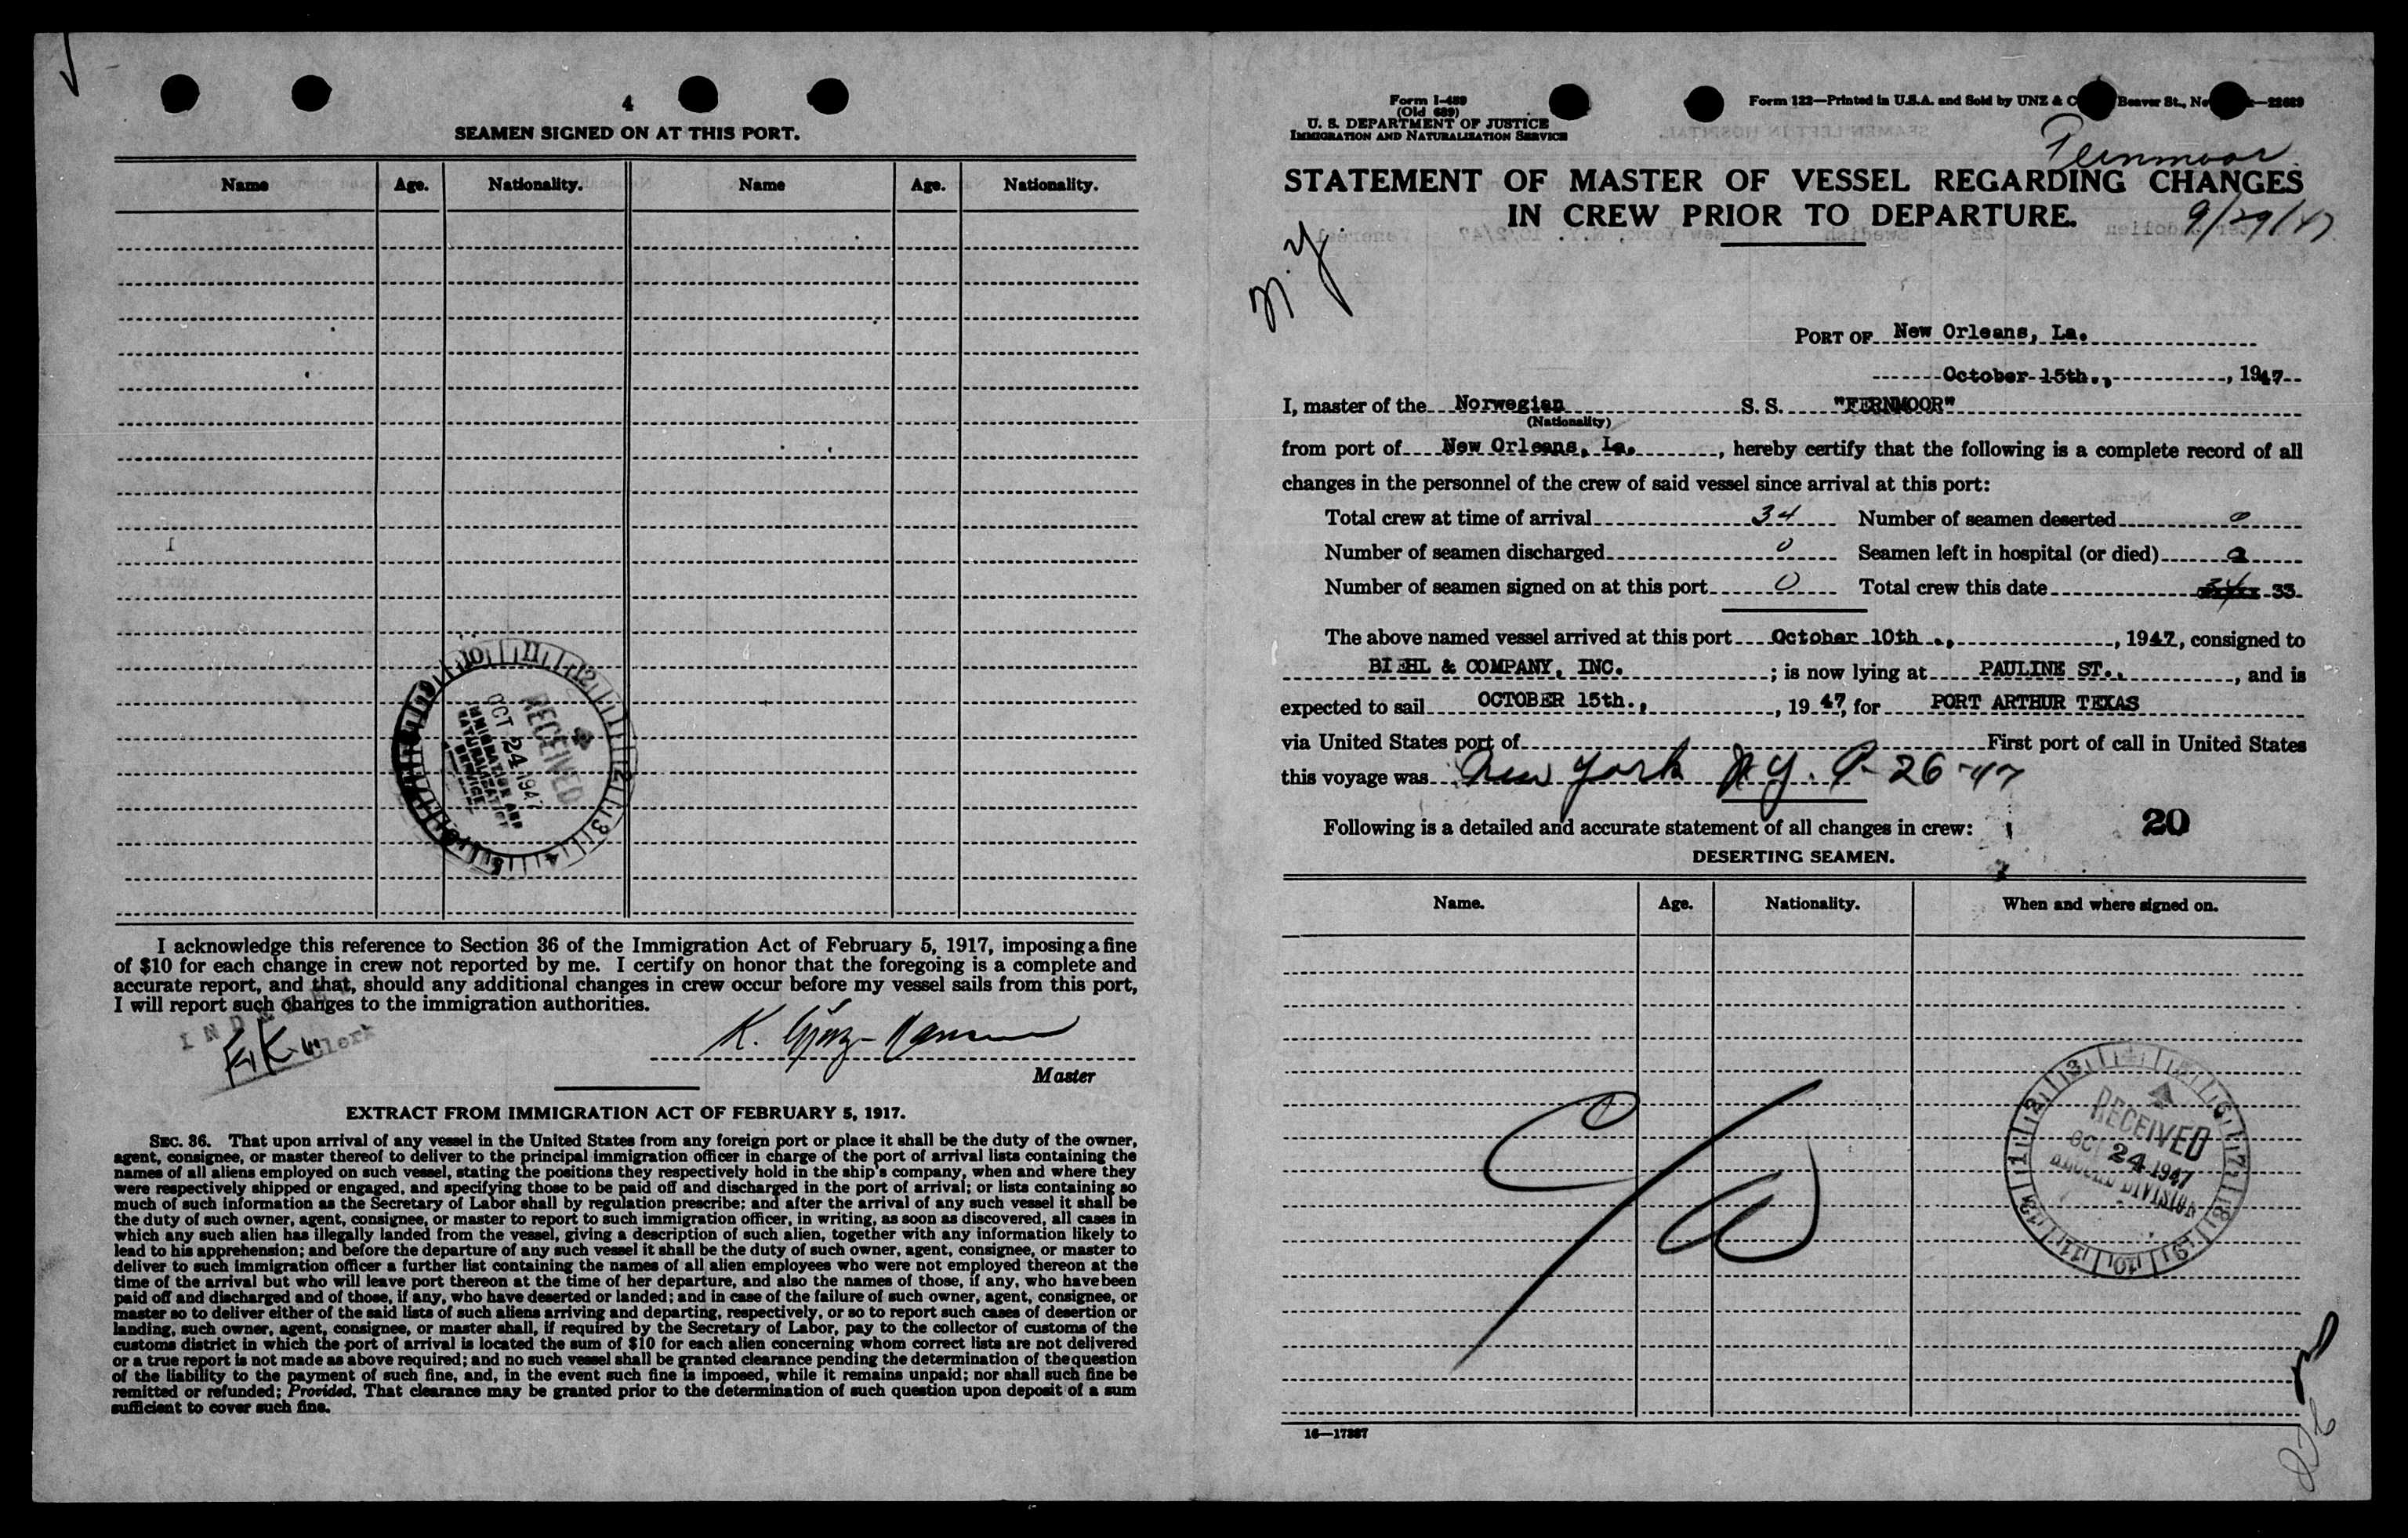 4
SEAMEN SIGNED ON AT THIS PORT.
Name Age. Nationality. Name Age. Nationality.
RECEIVED
OCT 24 1947
IMMIGRATION AND
NATURALIZATION
SERVICE
I acknowledge this reference to Section 36 of the Immigration Act of February 5, 1917, imposing a fine
of $10 for each change in crew not reported by me. I certify on honor that the foregoing is a complete and
accurate report, and that, should any additional changes in crew occur before my vessel sails from this port,
I will report such changes to the immigration authorities.
Clerk
K.
Master
EXTRACT FROM IMMIGRATION ACT OF FEBRUARY 5, 1917.
SEC. 36. That upon arrival of any vessel in the United States from any foreign port or place it shall be the duty of the owner,
agent, consignee, or master thereof to deliver to the principal immigration officer in charge of the port of arrival lists containing the
names of all aliens employed on such vessel, stating the positions they respectively hold in the ship's company, when and where they
were respectively shipped or engaged, and specifying those to be paid off and discharged in the port of arrival; or lists containing so
much of such information as the Secretary of Labor shall by regulation prescribe; and after the arrival of any such vessel it shall be
the duty of such owner, agent, consignee, or master to report to such immigration officer, in writing, as soon as discovered, all cases in
which any such alien has illegally landed from the vessel, giving a description of such alien, together with any information likely to
lead to his apprehension; and before the departure of any such vessel it shall be the duty of such owner, agent, consignee, or master to
deliver to such immigration officer a further list containing the names of all alien employees who were not employed thereon at the
time of the arrival but who will leave port thereon at the time of her departure, and also the names of those, if any, who have been
paid off and discharged and of those, if any, who have deserted or landed; and in case of the failure of such owner, agent, consignee, or
master so to deliver either of the said lists of such aliens arriving and departing, respectively, or so to report such cases of desertion or
landing, such owner, agent, consignee, or master shall, if required by the Secretary of Labor, pay to the collector of customs of the
customs district in which the port of arrival is located the sum of $10 for each alien concerning whom correct lists are not delivered
or a true report is not made as above required; and no such vessel shall be granted clearance pending the determination of the question
of the liability to the payment of such fine, and, in the event such fine is imposed, while it remains unpaid; nor shall such fine be
remitted or refunded; Provided, That clearance may be granted prior to the determination of such question upon deposit of a sum
sufficient to cover such fine.
Form I-489
(Old 689)
U. S. DEPARTMENT OF JUSTICE
IMMIGRATION AND NATURALIZATION SERVICE
Form 122—Printed in U.S.A. and Sold by UNZ & C Beaver St., Ne
Fernmoor
STATEMENT OF MASTER OF VESSEL REGARDING CHANGES
IN CREW PRIOR TO DEPARTURE.
9/29/47
N.Y
PORT OF New Orleans, La.
October 15th., , 1947
I, master of the Norwegian S. S. "FERNMOOR"
(Nationality)
from port of New Orleans, La. , hereby certify that the following is a complete record of all
changes in the personnel of the crew of said vessel since arrival at this port:
Total crew at time of arrival 34 Number of seamen deserted 0
Number of seamen discharged 0 Seamen left in hospital (or died)
Number of seamen signed on at this port 0 Total crew this date 33
The above named vessel arrived at this port October 10th ., , 1947, consigned to
BIEHL & COMPANY, INC. ; is now lying at PAULINE ST., , and is
expected to sail OCTOBER 15th., , 1947, for PORT ARTHUR TEXAS
via United States port of First port of call in United States
this voyage was New York N.Y. 9-26-47
Following is a detailed and accurate statement of all changes in crew: 20
DESERTING SEAMEN.
Name. Age. Nationality. When and where signed on.
RECEIVED
OCT 24 1947
RECORD DIVISION
16—17387